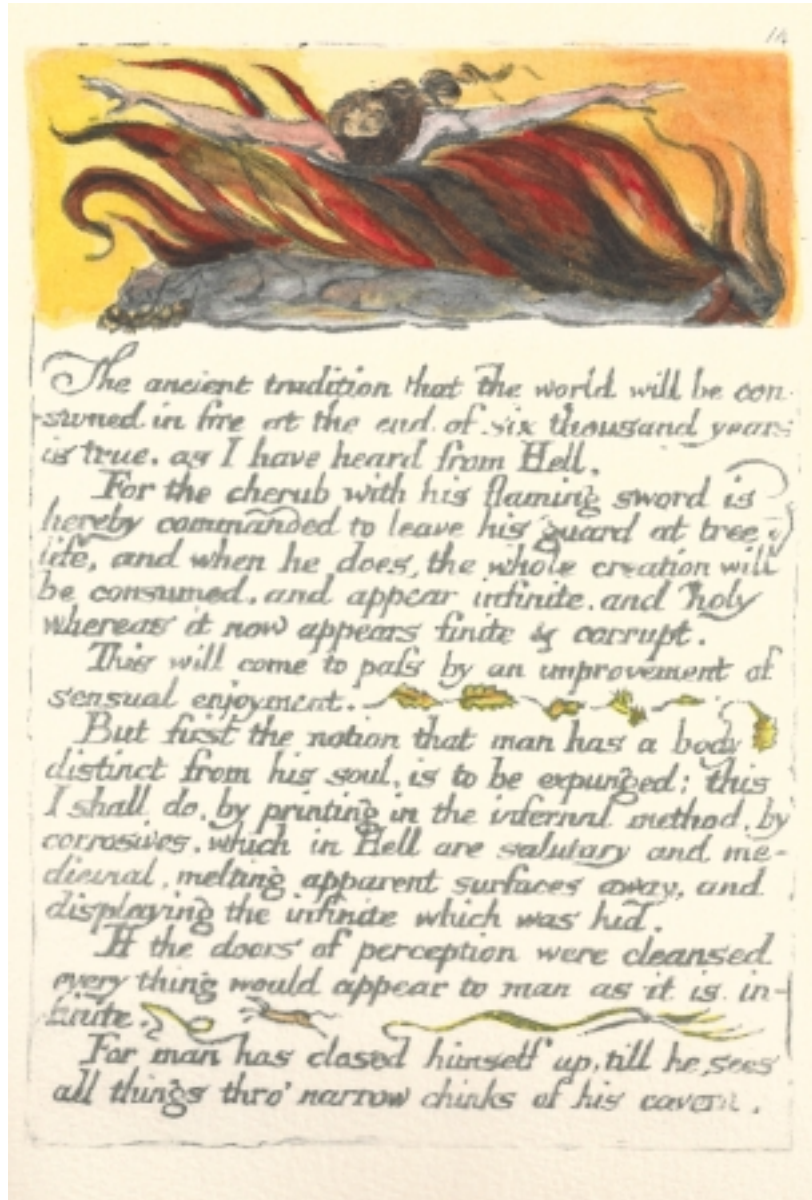 14
The ancient tradition that the world will be con-
-sumed in fire at the end of six thousand years
is true. as I have heard from Hell.
For the cherub with his flaming sword is
hereby commanded to leave his guard at tree of
life, and when he does, the whole creation will
be consumed, and appear infinite. and holy
whereas it now appears finite & corrupt.
This will come to paſs by an improvement of
sensual enjoyment.
But first the notion that man has a body
distinct from his soul, is to be expunged; this
I shall do, by printing in the infernal method, by
corrosives, which in Hell are salutary and me-
dicinal, melting apparent surfaces away, and
displaying the infinite which was hid.
If the doors of perception were cleansed
every thing would appear to man as it is, in-
finite.
For man has closed himself up, till he sees
all things thro' narrow chinks of his cavern.